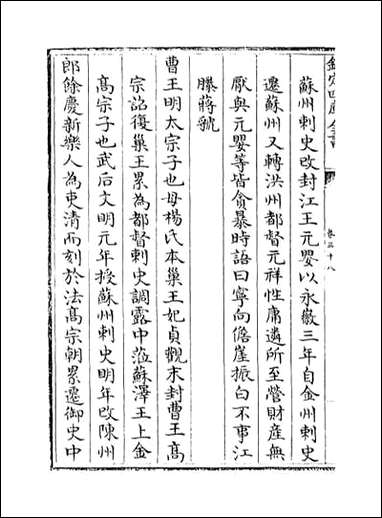 欽定四庫全書
卷三十八
蘇州刺史改封江王元嬰以永徽三年自金州刺史
遷蘇州又轉洪州都督元祥性庸遴所至營財產無
厭與元嬰等皆貪暴時語曰寧向儋崖振白不事江
滕蔣虢
曹王明太宗子也母楊氏本巢王妃貞觀末封曹王高
宗詔復巢王累為都督刺史調露中蒞蘇澤王上金
高宗子也武后文明元年授蘇州刺史明年改陳州
郎餘慶新樂人為吏清而刻於法高宗朝累遷御史中